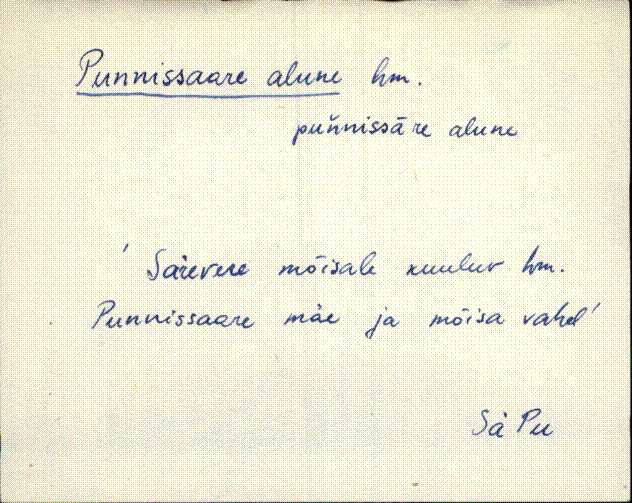 Punnissaare alune hm.
puňnissāre alune
' Särevere mõisale kuuluv hm.
Punnissaare mäe ja mõisa vahel'
Sä Pu